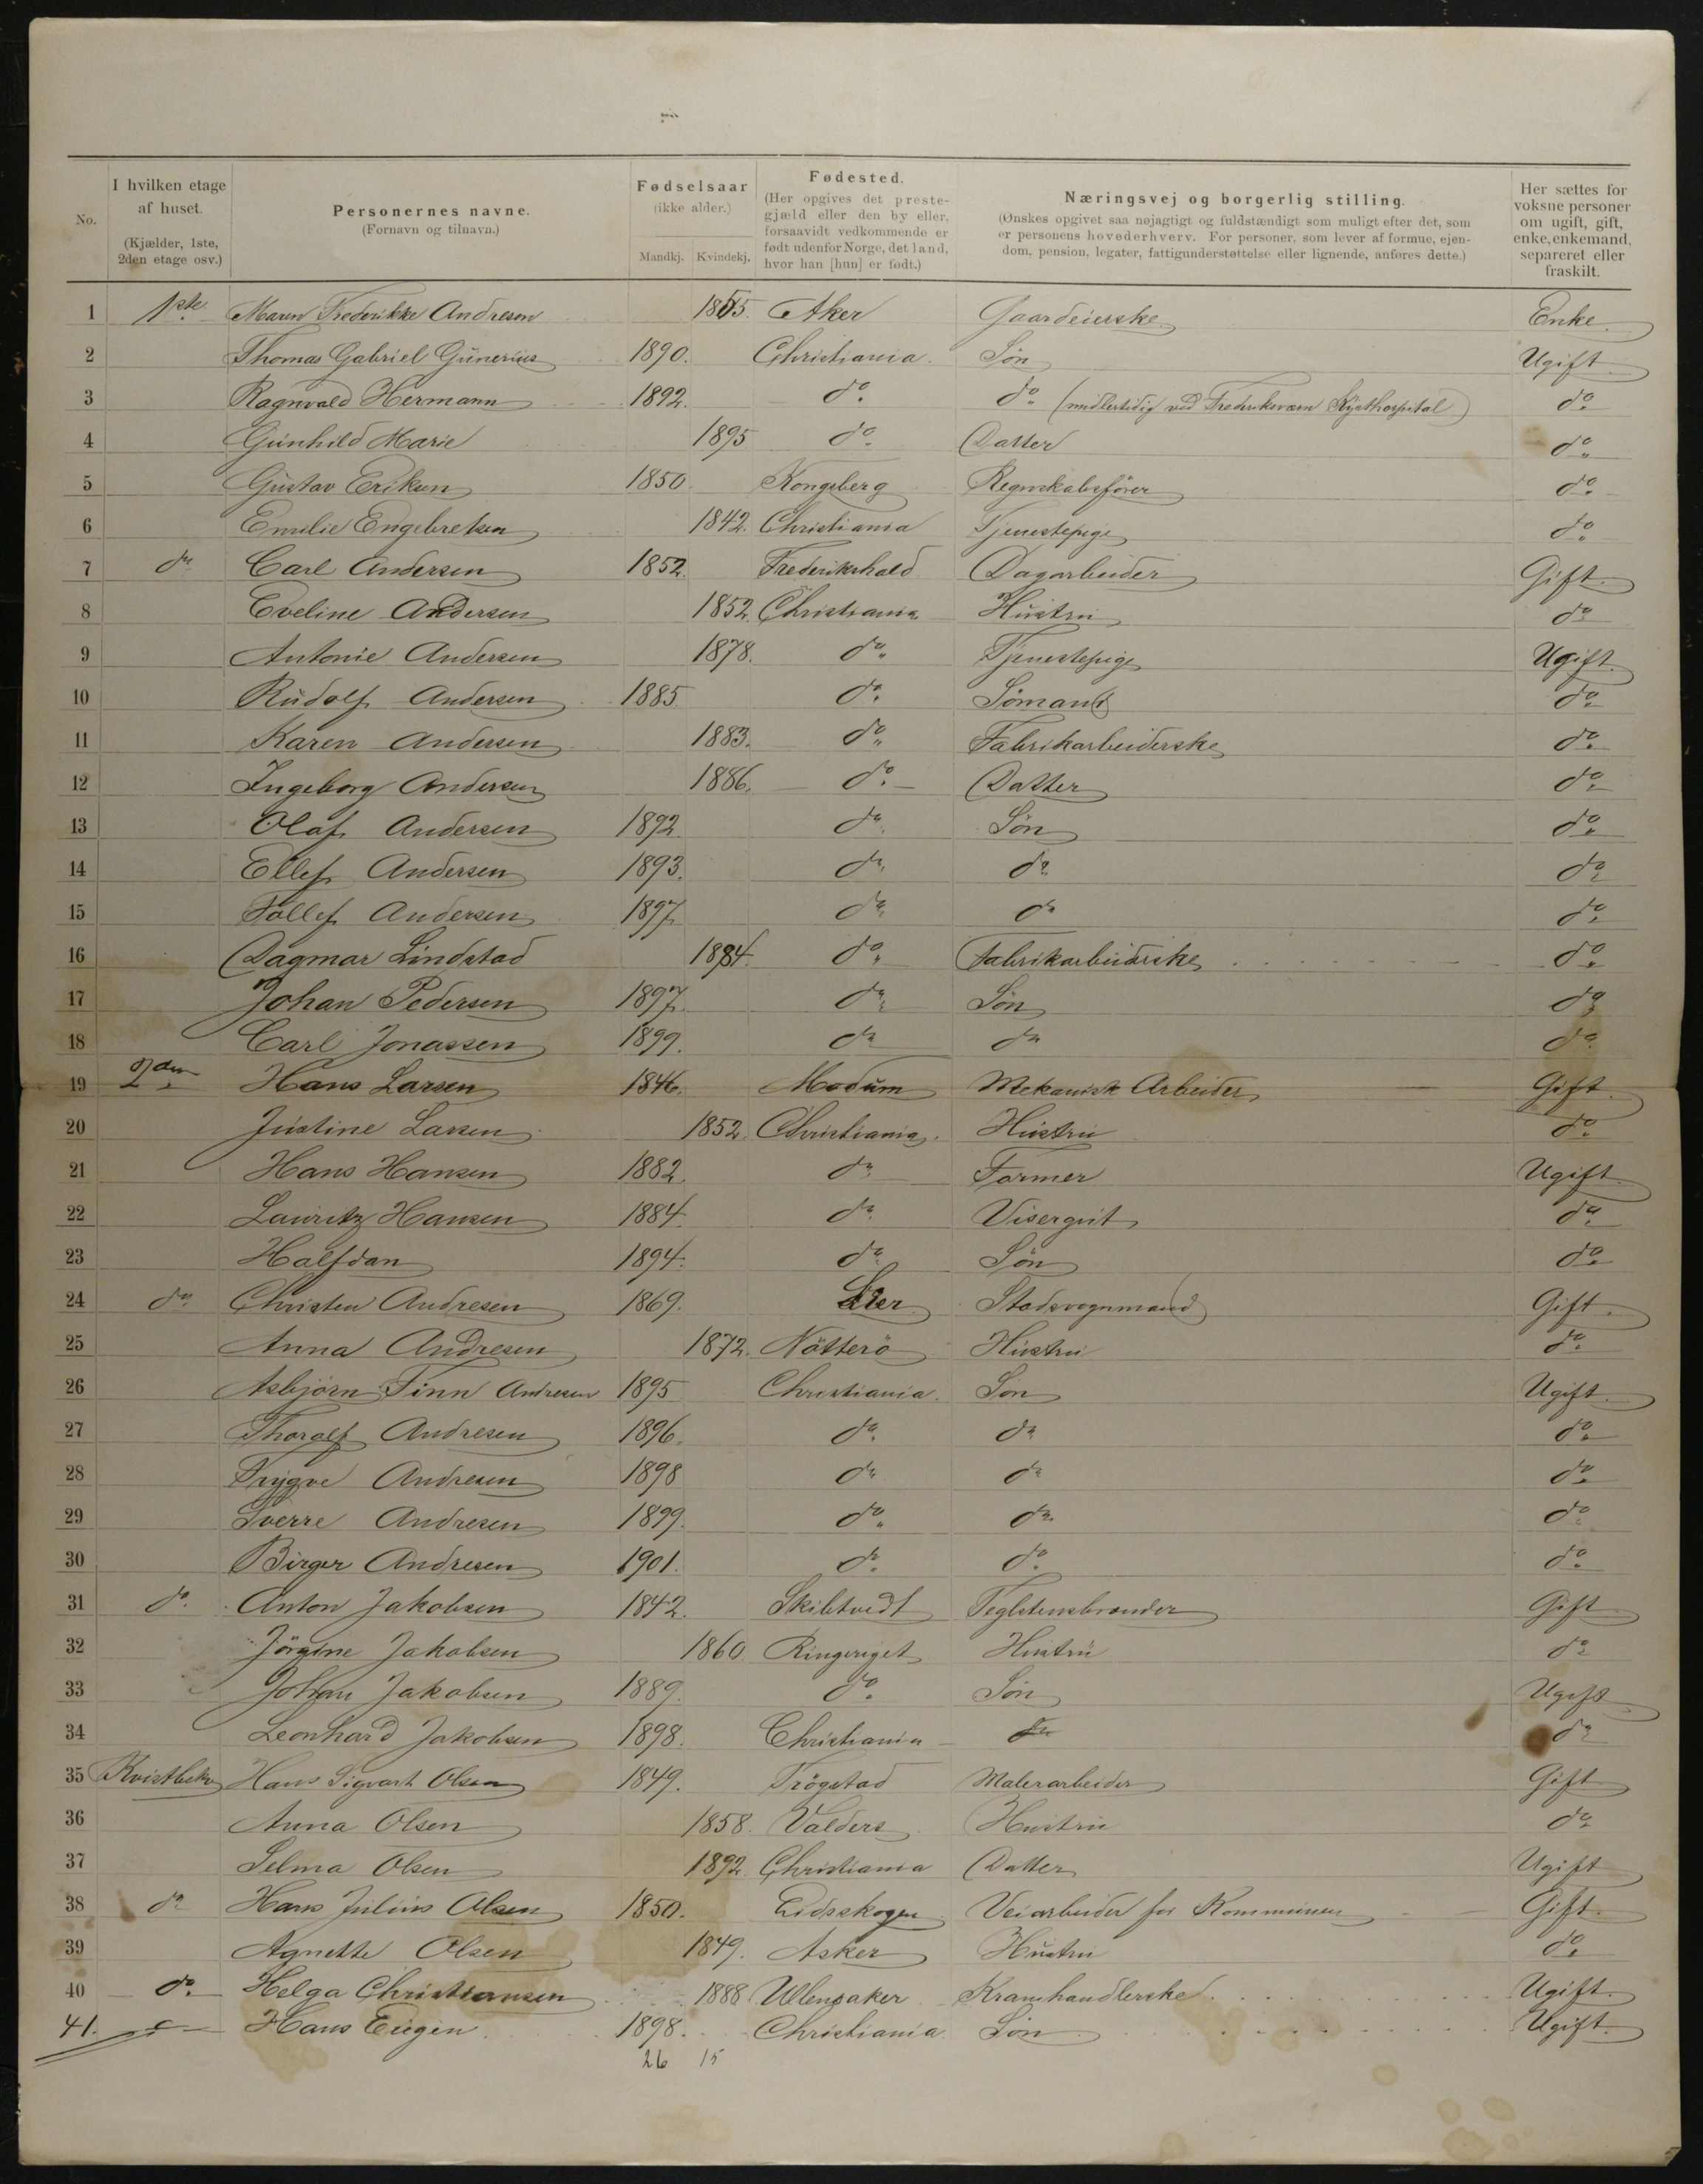 No.
I hvilken etage af huset. (Kjælder, 1ste, 2den etage osv.)
Personernes navne. (Fornavn og tilnavn.)
Fødselsaar (ikke alder.) Mandkj. Kvindekj.
Fødested. (Her opgives det prestegjæld eller den by eller, forsaavidt vedkommende er født udenfor Norge, det land, hvor han [hun] er født.)
Næringsvej og borgerlig stilling. (Ønskes opgivet saa nøjagtigt og fuldstændigt som muligt efter det, som er personens hovederhverv. For personer, som lever af formue, ejendom, pension, legater, fattigunderstøttelse eller lignende, anføres dette.)
Her sættes for voksne personer om ugift, gift, enke, enkemand, separeret eller fraskilt.
1 1ste Maren Frederikke Andresen Aker Gaardeierske Enke
2 Thomas Gabriel Gunerius 1890. Christiania. Søn Ugift
3 Ragnvald Hermann 1892. do. do. (midlertidig ved Frederiksværn Kysthospital) do.
4 Gunhild Marie 1895 do. Datter do.
5 Gustav Eriksen 1850. Kongsberg Regnskabsfører do.
6 Emilie Engebretsen 1842. Christiania Tjenestepige do.
7 do. Carl Andersen 1852. Frederikshald Dagarbeider Gift.
8 Eveline Andersen 1852. Christiania Hustru do.
9 Antonie Andersen 1878. do. Tjenestepige Ugift.
10 Rudolf Andersen 1885 do. Sömand do.
11 Karen Andersen 1883. do. Fabrikarbeiderske do.
12 Ingeborg Andersen 1886. do. Datter do.
13 Olaf Andersen 1892. do. Søn do.
14 Ellef Andersen 1893. do. do. do.
15 Tollef Andersen 1897. do. do. do.
16 Dagmar Lindstad 1884. do. Fabrikarbeiderske do.
17 Johan Pedersen 1897. do. Søn do.
18 Carl Jonassen 1899. do. do. do.
19 2den Hans Larsen 1846. Modum Mekanisk Arbeider Gift.
20 Justine Larsen 1852. Christiania. Hustru do.
21 Hans Hansen 1882. do. Former Ugift.
22 Lauritz Hansen 1884. do. Visergut do.
23 Halfdan 1894. do. Søn do.
24 do. Christen Andresen 1869. Lier Stadsvognmand Gift.
25 Anna Andresen 1872. Nøtterø Hustru do.
26 Asbjørn Finn Andresen 1895 Christiania. Søn Ugift.
27 Thoralf Andresen 1896. do. do. do.
28 Trygve Andresen 1898 do. do. do.
29 Sverre Andresen 1899. do. do. do.
30 Birger Andresen 1901. do. do. do.
31 do. Anton Jakobsen 1842. Skibtvedt Teglstensbrænder Gift
32 Jørgine Jakobsen 1860 Ringeriget Hustru do.
33 Johan Jakobsen 1889. do. Søn Ugift
34 Leonhard Jakobsen 1898. Christiania do. do.
35 Hans Sigvart Olsen 1849. Trøgstad Malerarbeider Gift
36 Anna Olsen 1858. Valders Hustru do.
37 Selma Olsen 1892. Christiania Datter Ugift
38 do. Hans Julius Olsen 1850. Eidsskogen Veiarbeider for Kommunen Gift.
39 Agnette Olsen 1849. Asker Hustru do.
40 do. Helga Christiansen 1888 Ullensaker Kramhandlerske Ugift.
41. Hans Eugen 1898. Christiania Søn Ugift.
26 15